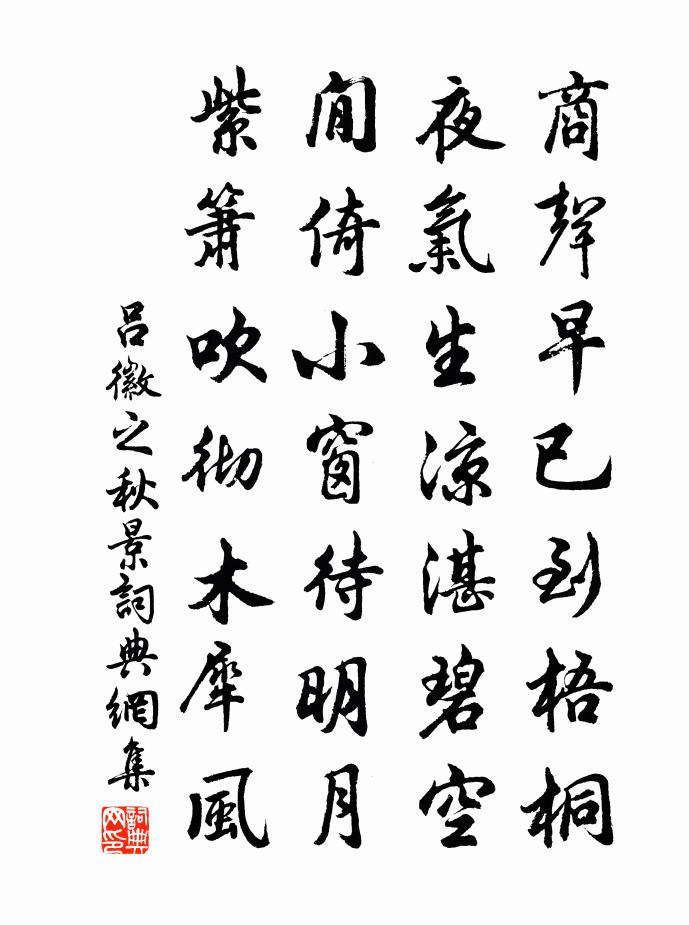 商聲早已到梧桐
夜氣生涼湛碧空
閒倚小窗待明月
紫簫吹徹木犀風
呂徽之秋景詞典網集
詞典网印